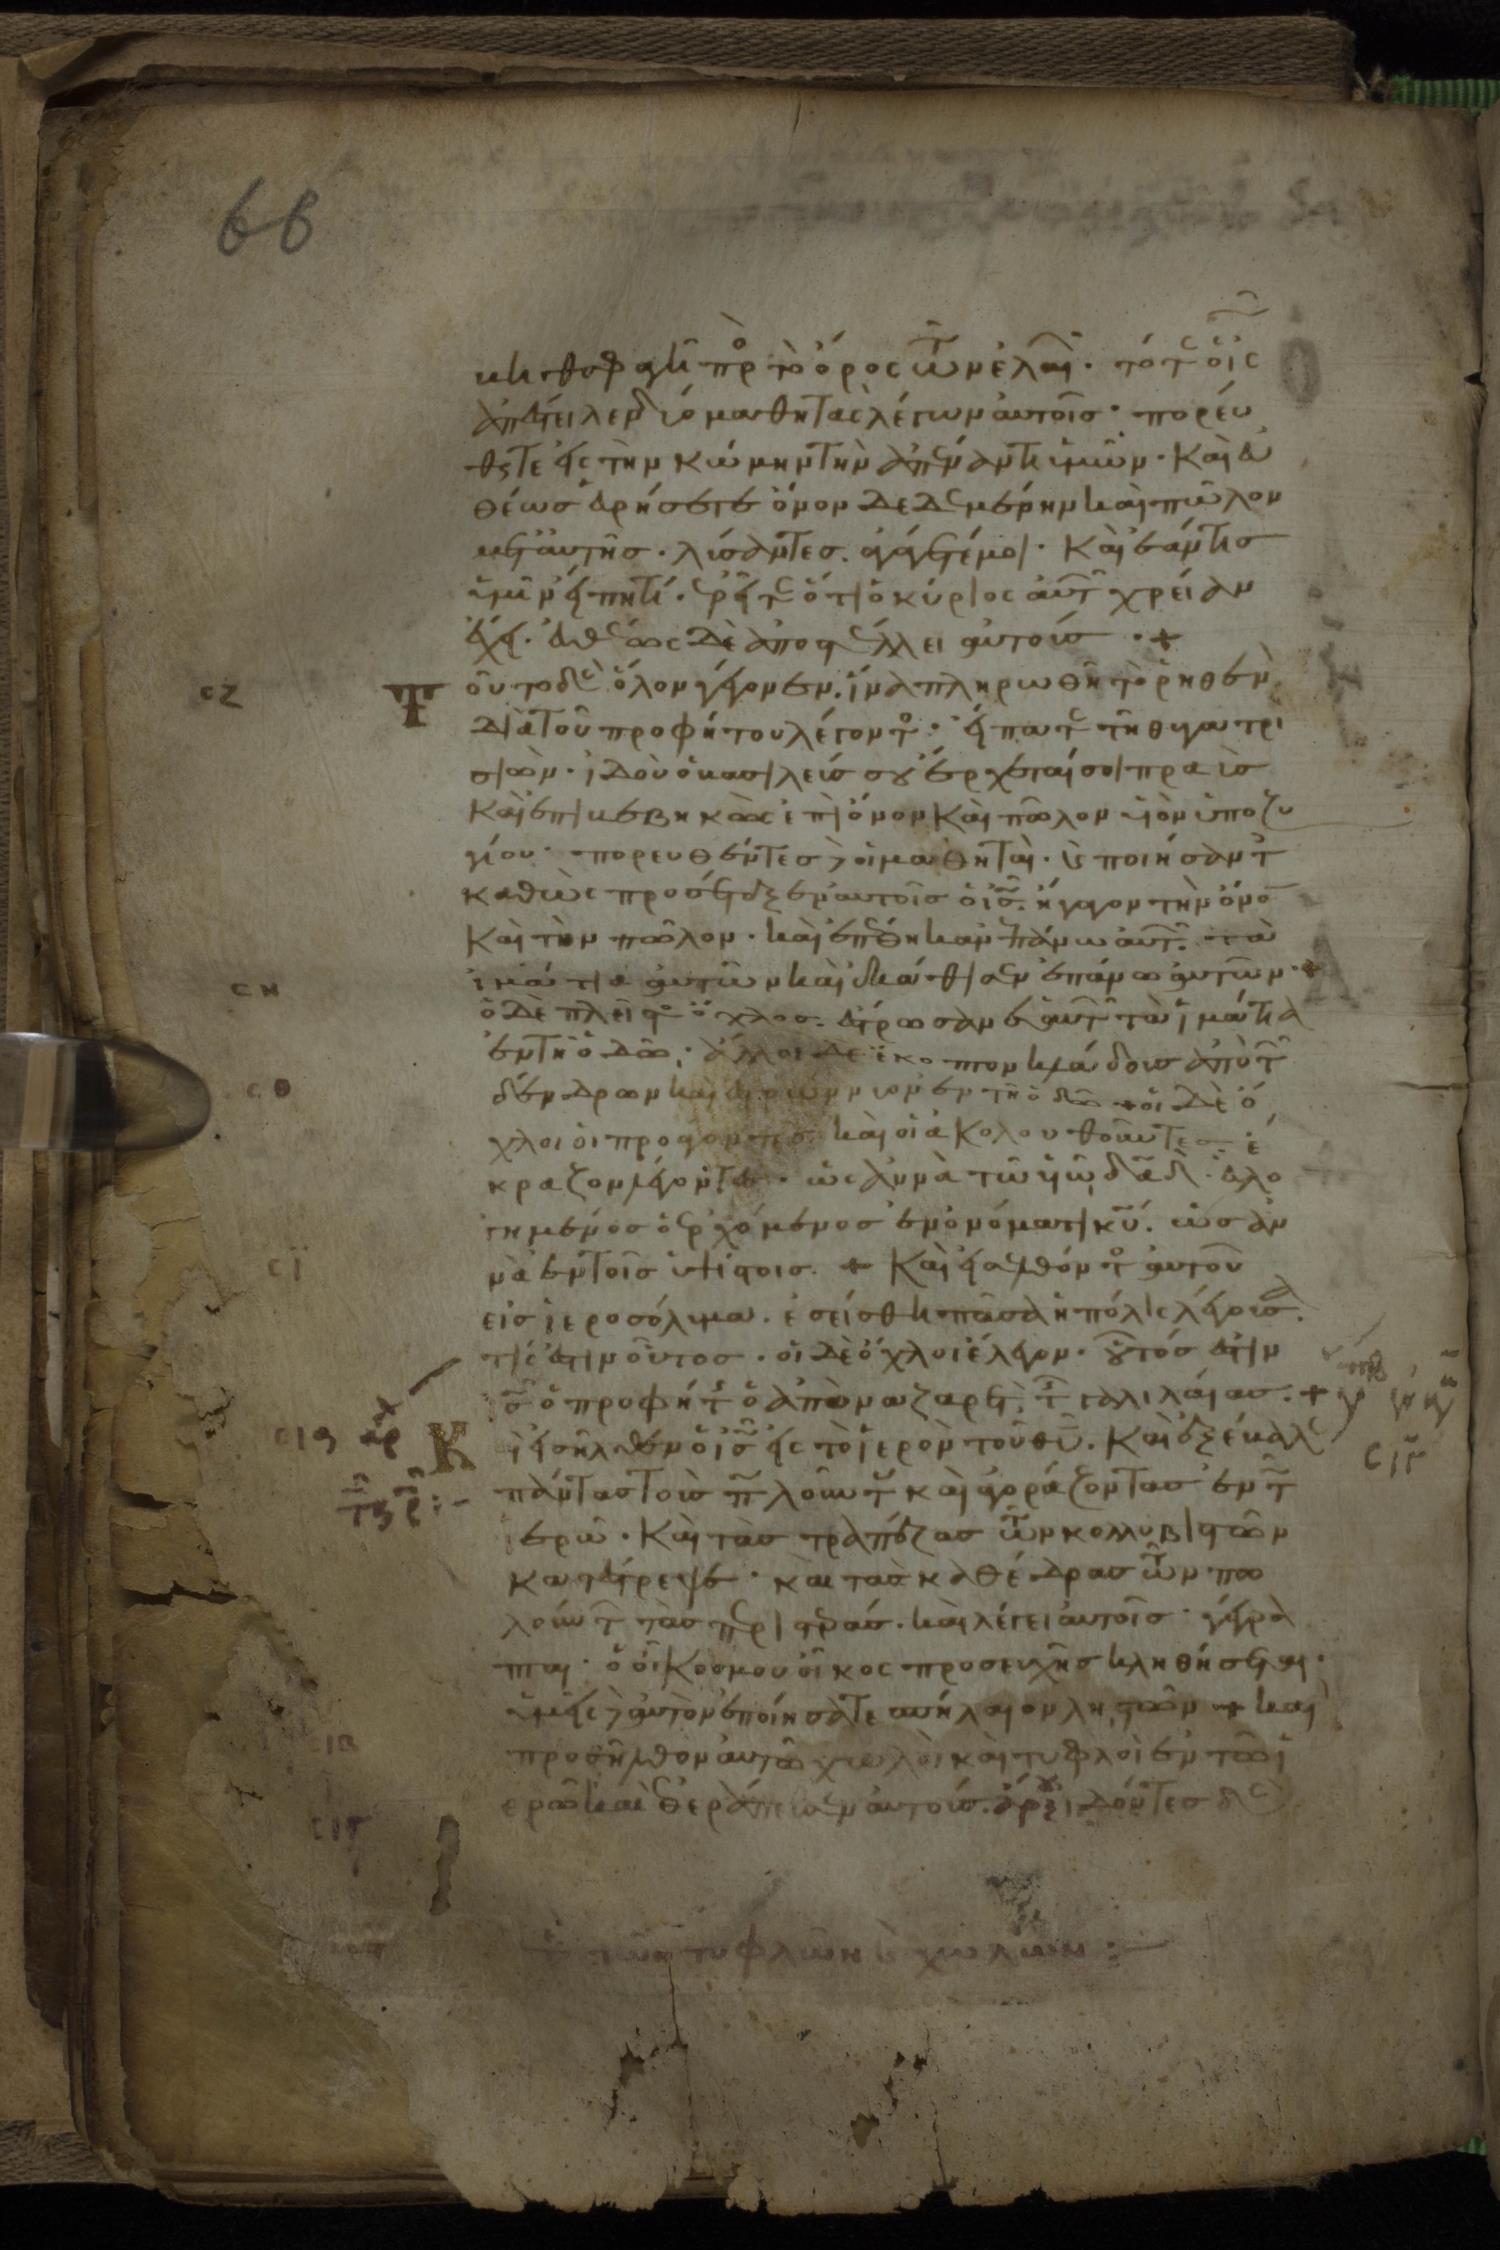 66
κη θσφαγη πρ το όρος των ελαι. τότε ὁ ις
ἀπέστειλεν δύο μαθητας λέγων αὐτοῖς· πορεύ
θητε εἰς τὴν κώμην τὴν ἀπέναντι ὑμῶν. Καὶ εὐ
θέως εὑρήσετε ὄνον δεδεμένην καὶ πῶλον
μετ αὐτῆς. λύσαντες. ἀγάγετέ μοι. Καὶ ἐάν τις
ὑμῖν εἴπη τί. ἐρεῖτε ὅτι ὁ κύριος αὐτῶν χρείαν
ἔχει. εὐθέως δὲ ἀποστέλλει αὐτούς . +
σζ Τ οῦτο δὲ ὅλον γέγονεν. ἵνα πληρωθῆ τὸ ῥηθὲν
διὰ τοῦ προφήτου λέγοντος· εἴπατε τῆ θυγατρὶ
σιών. ἰδοὺ ὁ βασιλεύς σου ἔρχεταί σοι πραΰς
Καὶ ἐπιβεβηκὼς ἐπὶ ὄνον καὶ πῶλον υἱὸν ὑποζυ
γίου. πορευθέντες δὲ οἱ μαθηταί. καὶ ποιήσαντες
καθὼς προσέταξεν αὐτοῖς ὁ ις. ἤγαγον τὴν ὄνον
Καὶ τὴν πῶλον. καὶ ἐπέθηκαν ἐπάνω αὐτῶν τὰ
ἱμάτια αὐτῶν καὶ ἐκάθισεν ἐπάνω αὐτῶν. +
ση ὁ δὲ πλεῖστος ὄχλος. ἔστρωσαν ἑαυτῶν τὰ ἱμάτια
ἐν τῆ ὁδῶ. ἄλλοι δὲ ἔκοπτον κλάδους ἀπὸ τῶν
σθ δένδρων καὶ ἐστρώννυον ἐν τῆ ὁδῶ + οἱ δὲ ὄ
χλοι οἱ προάγοντες καὶ οἱ ἀκολουθοῦντες ἔ
κραζον λέγοντες. ὡσαννὰ τῶ υἱῶ δαδ. εὐλο
γημένος ὁ ἐρχόμενος ἐν ὀνόματι κυ. ὡσαν
σι νὰ ἐν τοῖς ὑψίστοις. + Καὶ εἰσελθόντος αὐτοῦ
εἰς ἱεροσόλυμα. ἐσείσθη πᾶσα ἡ πόλις λέγουσα.
τίς ἐστιν οὗτος. οἱ δὲ ὄχλοι ἔλεγον. οὗτός ἐστιν
ις ὁ προφήτης ὁ ἀπὸ ναζαρὲτ τῆς γαλιλαίας. +
σια αρ Κ αὶ εἰσῆλθεν ὁ ις εἰς τὸ ἱερὸν τοῦ θυ. Καὶ ἐξέβαλε
πάντας τοὺς πωλοῦντας καὶ ἀγοράζοντας ἐν τῶ
ἱερῶ. Καὶ τὰς τραπέζας τῶν κολλυβιστῶν
κατέστρεψε. καὶ τὰς καθέδρας τῶν πω
λούντων τὰς περιστεράς. καὶ λέγει αὐτοῖς. γέγρα
πται. ὁ οἶκος μου οἶκος προσευχῆς κληθήσεται.
ὑμεῖς δὲ αὐτὸν ἐποιήσατε σπήλαιον ληστῶν + καὶ
σιβ προσῆλθον αὐτῶ χωλοὶ καὶ τυφλοὶ ἐν τῶ ἱ
σιγ ερῶ καὶ ἐθεράπευσεν αὐτούς. ἰδόντες δὲ
τῶν τυφλῶν καὶ χωλῶν :—